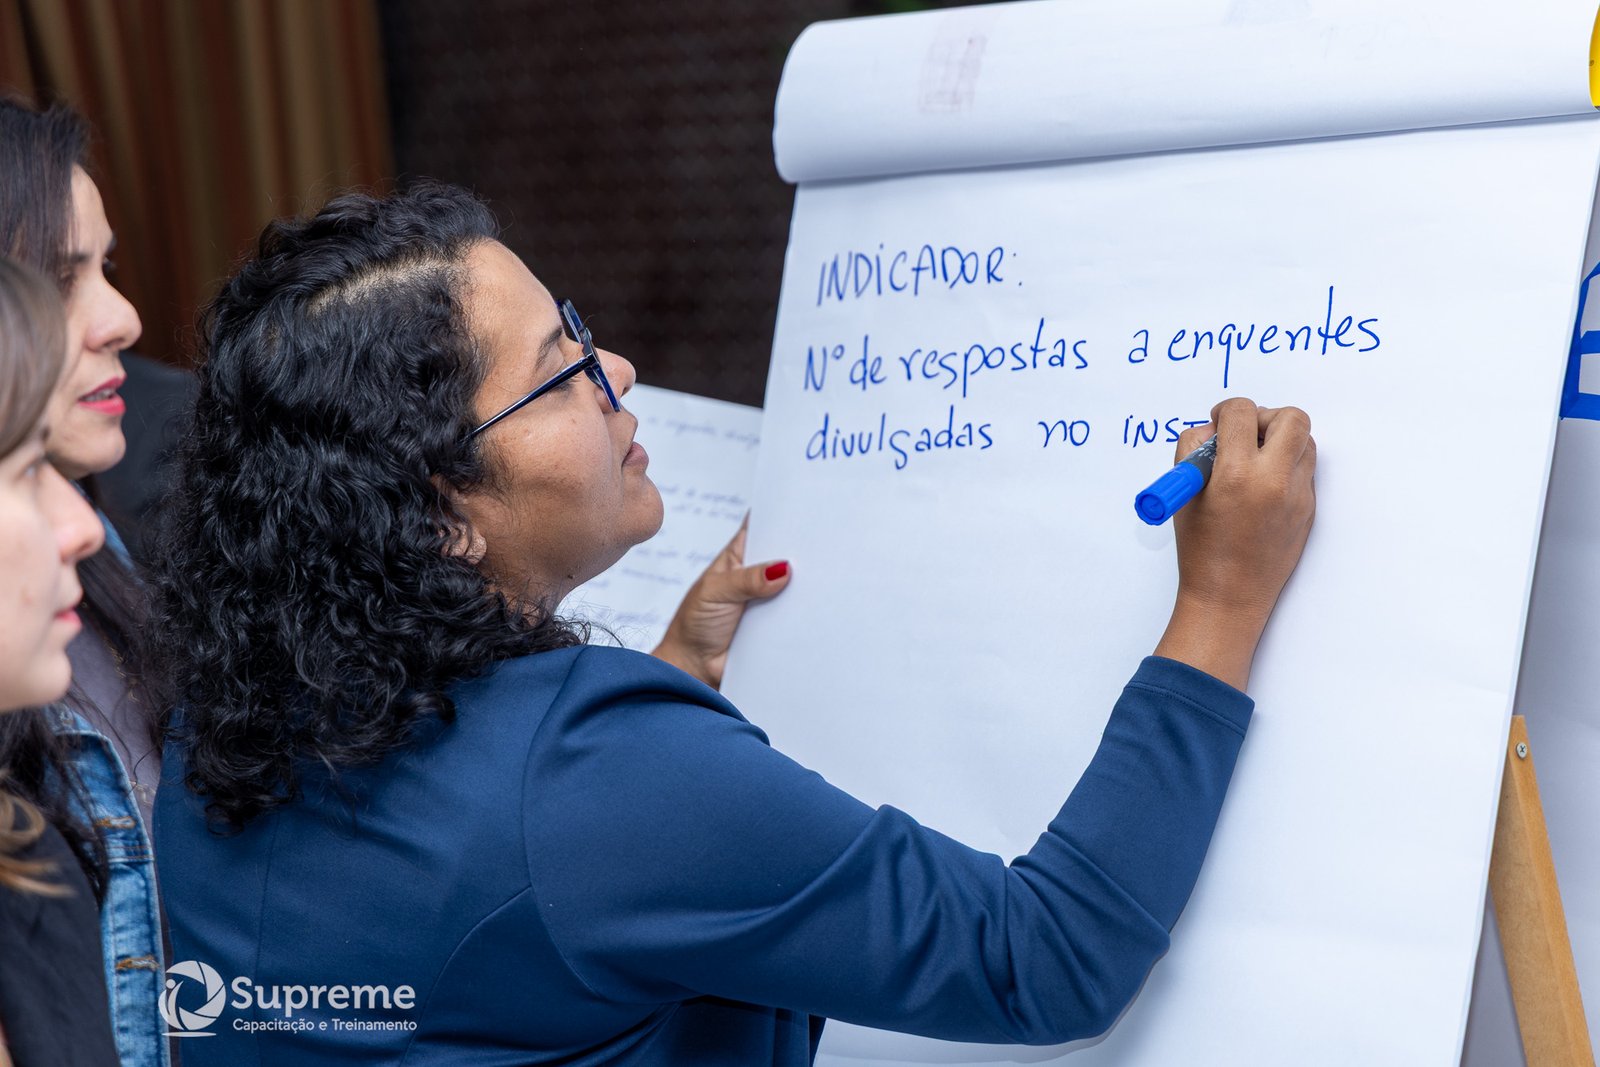 INDICADOR:
Nº de respostas a enquentes
divulgadas no INST
Supreme
Capacitação e Treinamento